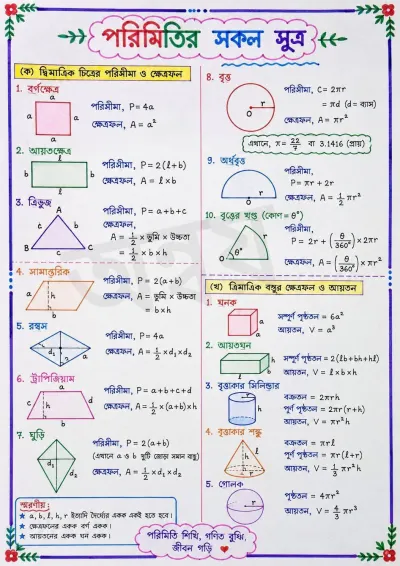 পরিমিতির সকল সুত্র
(ক) দ্বিমাত্রিক চিত্রের পরিসীমা ও ক্ষেত্রফল
1. বর্গক্ষেত্র
a
a
a
পরিসীমা, P = 4a
ক্ষেত্রফল, A = a²
2. আয়তক্ষেত্র
l
b
b
l
পরিসীমা, P = 2(l+b)
ক্ষেত্রফল, A = l × b
3. ত্রিভুজ
A
c
b
B
a
C
পরিসীমা, P = a+b+c
ক্ষেত্রফল,
A = 1/2 × ভূমি × উচ্চতা
= 1/2 × b × h
4. সামান্তরিক
b
h
a
পরিসীমা, P = 2(a+b)
ক্ষেত্রফল, A = ভূমি × উচ্চতা
= b×h
5. রম্বস
d₁
d₂
a
পরিসীমা, P = 4a
ক্ষেত্রফল, A = 1/2 × d₁ × d₂
6. ট্রাপিজিয়াম
a
c
h
d
b
পরিসীমা, P = a+b+c+d
ক্ষেত্রফল, A = 1/2 × (a+b)×h
7. ঘুড়ি
d₁
d₂
পরিসীমা, P = 2(a+b)
(এখানে a ও b দুটি জোড়া সমান বাহু)
ক্ষেত্রফল, A = 1/2 × d₁ × d₂
স্মরণীয়:
★ a, b, l, h, r ইত্যাদি দৈর্ঘ্যের একক একই হতে হবে।
★ ক্ষেত্রফলের একক বর্গ একক।
★ আয়তনের একক ঘন একক।
8. বৃত্ত
r
O
পরিসীমা, C = 2πr
= πd (d = ব্যাস)
ক্ষেত্রফল, A = πr²
এখানে, π = 22/7 বা 3.1416 (প্রায়)
9. অর্ধবৃত্ত
O
r
পরিসীমা,
P = πr + 2r
ক্ষেত্রফল, A = 1/2 πr²
10. বৃত্তের খণ্ড (কোণ = θ°)
r
θ°
O
পরিসীমা,
P = 2r + (θ/360°) × 2πr
ক্ষেত্রফল, A = (θ/360°) × πr²
(খ) ত্রিমাত্রিক বস্তুর ক্ষেত্রফল ও আয়তন
1. ঘনক
a
a
সম্পূর্ণ পৃষ্ঠতল = 6a²
আয়তন, V = a³
2. আয়তঘন
h
b
l
সম্পূর্ণ পৃষ্ঠতল = 2(lb+bh+hl)
আয়তন, V = l×b×h
3. বৃত্তাকার সিলিন্ডার
r
h
বক্রতল = 2πrh
পূর্ণ পৃষ্ঠতল = 2πr(r+h)
আয়তন, V = πr²h
4. বৃত্তাকার শঙ্কু
h
l
r
বক্রতল = πrl
পূর্ণ পৃষ্ঠতল = πr(l+r)
আয়তন, V = 1/3 πr²h
5. গোলক
r
পৃষ্ঠতল = 4πr²
আয়তন, V = 4/3 πr³
পরিমিতি শিখি, গণিত বুঝি,
জীবন গড়ি